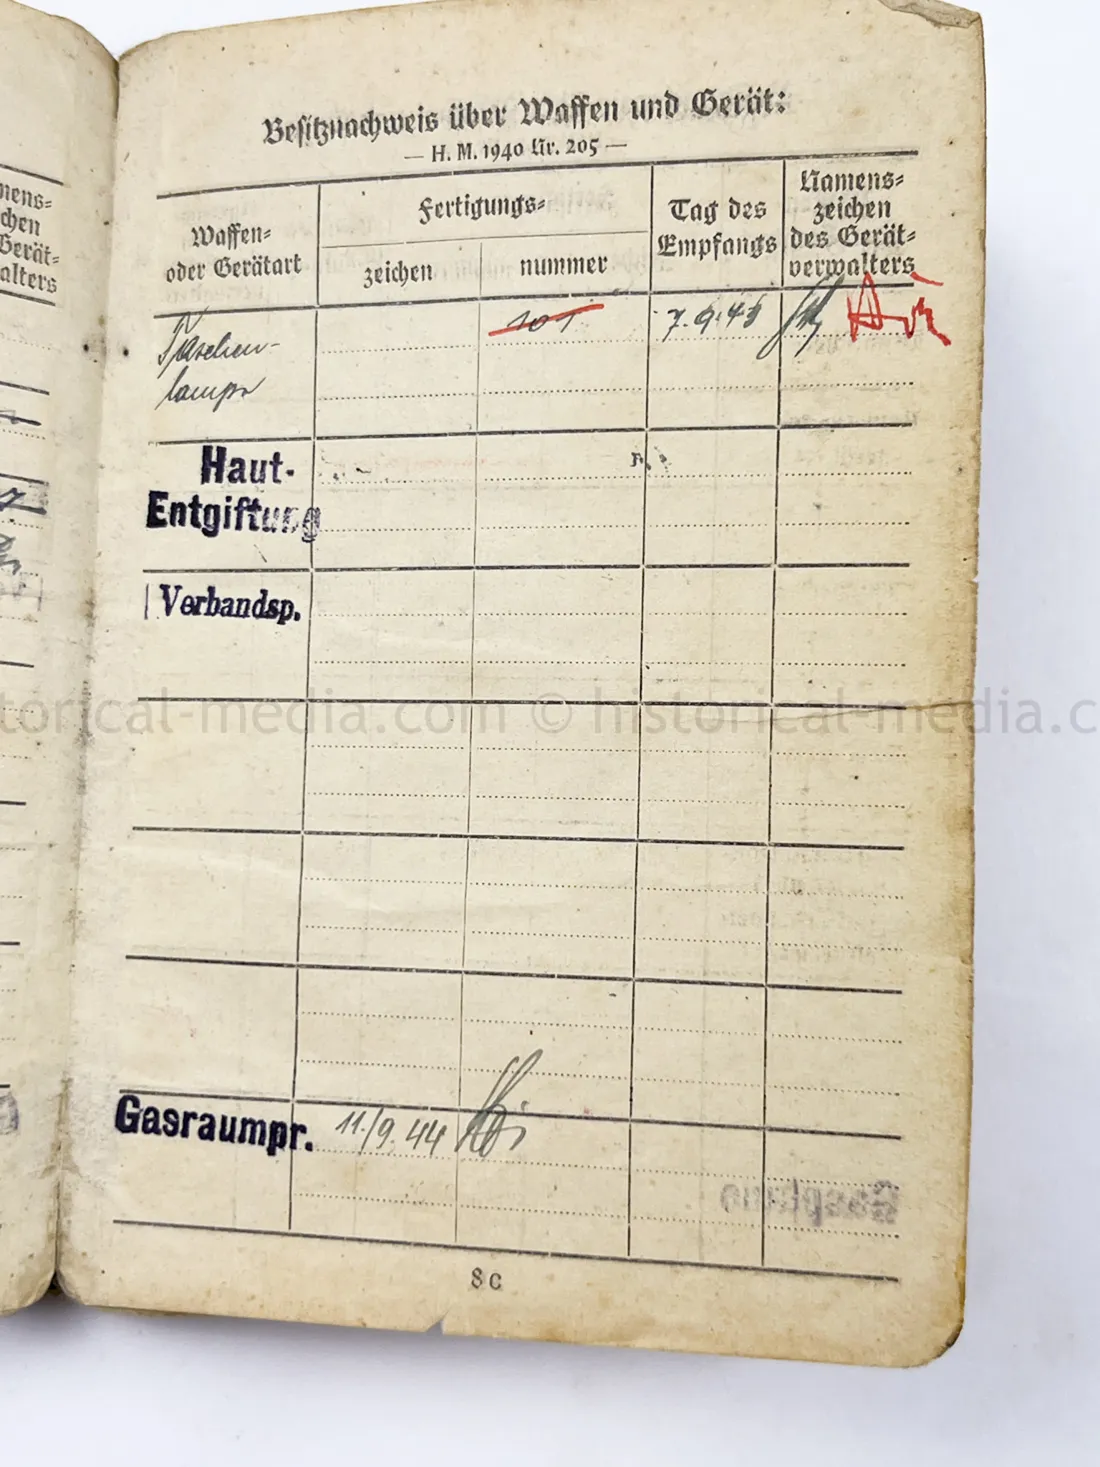 mens-
chen
Gerät-
alters
Besitznachweis über Waffen und Gerät:
— H. M. 1940 Nr. 205 —
Waffen-
oder Gerätart
Fertigungs-
zeichen
nummer
Tag des
Empfangs
Namens-
zeichen
des Gerät-
verwalters
Taschen-
lampe
101
7.9.43
Haut-
Entgiftung
Verbandsp.
torical-media.com © historical-media.c
Gasraumpr.
11./9.44
8c